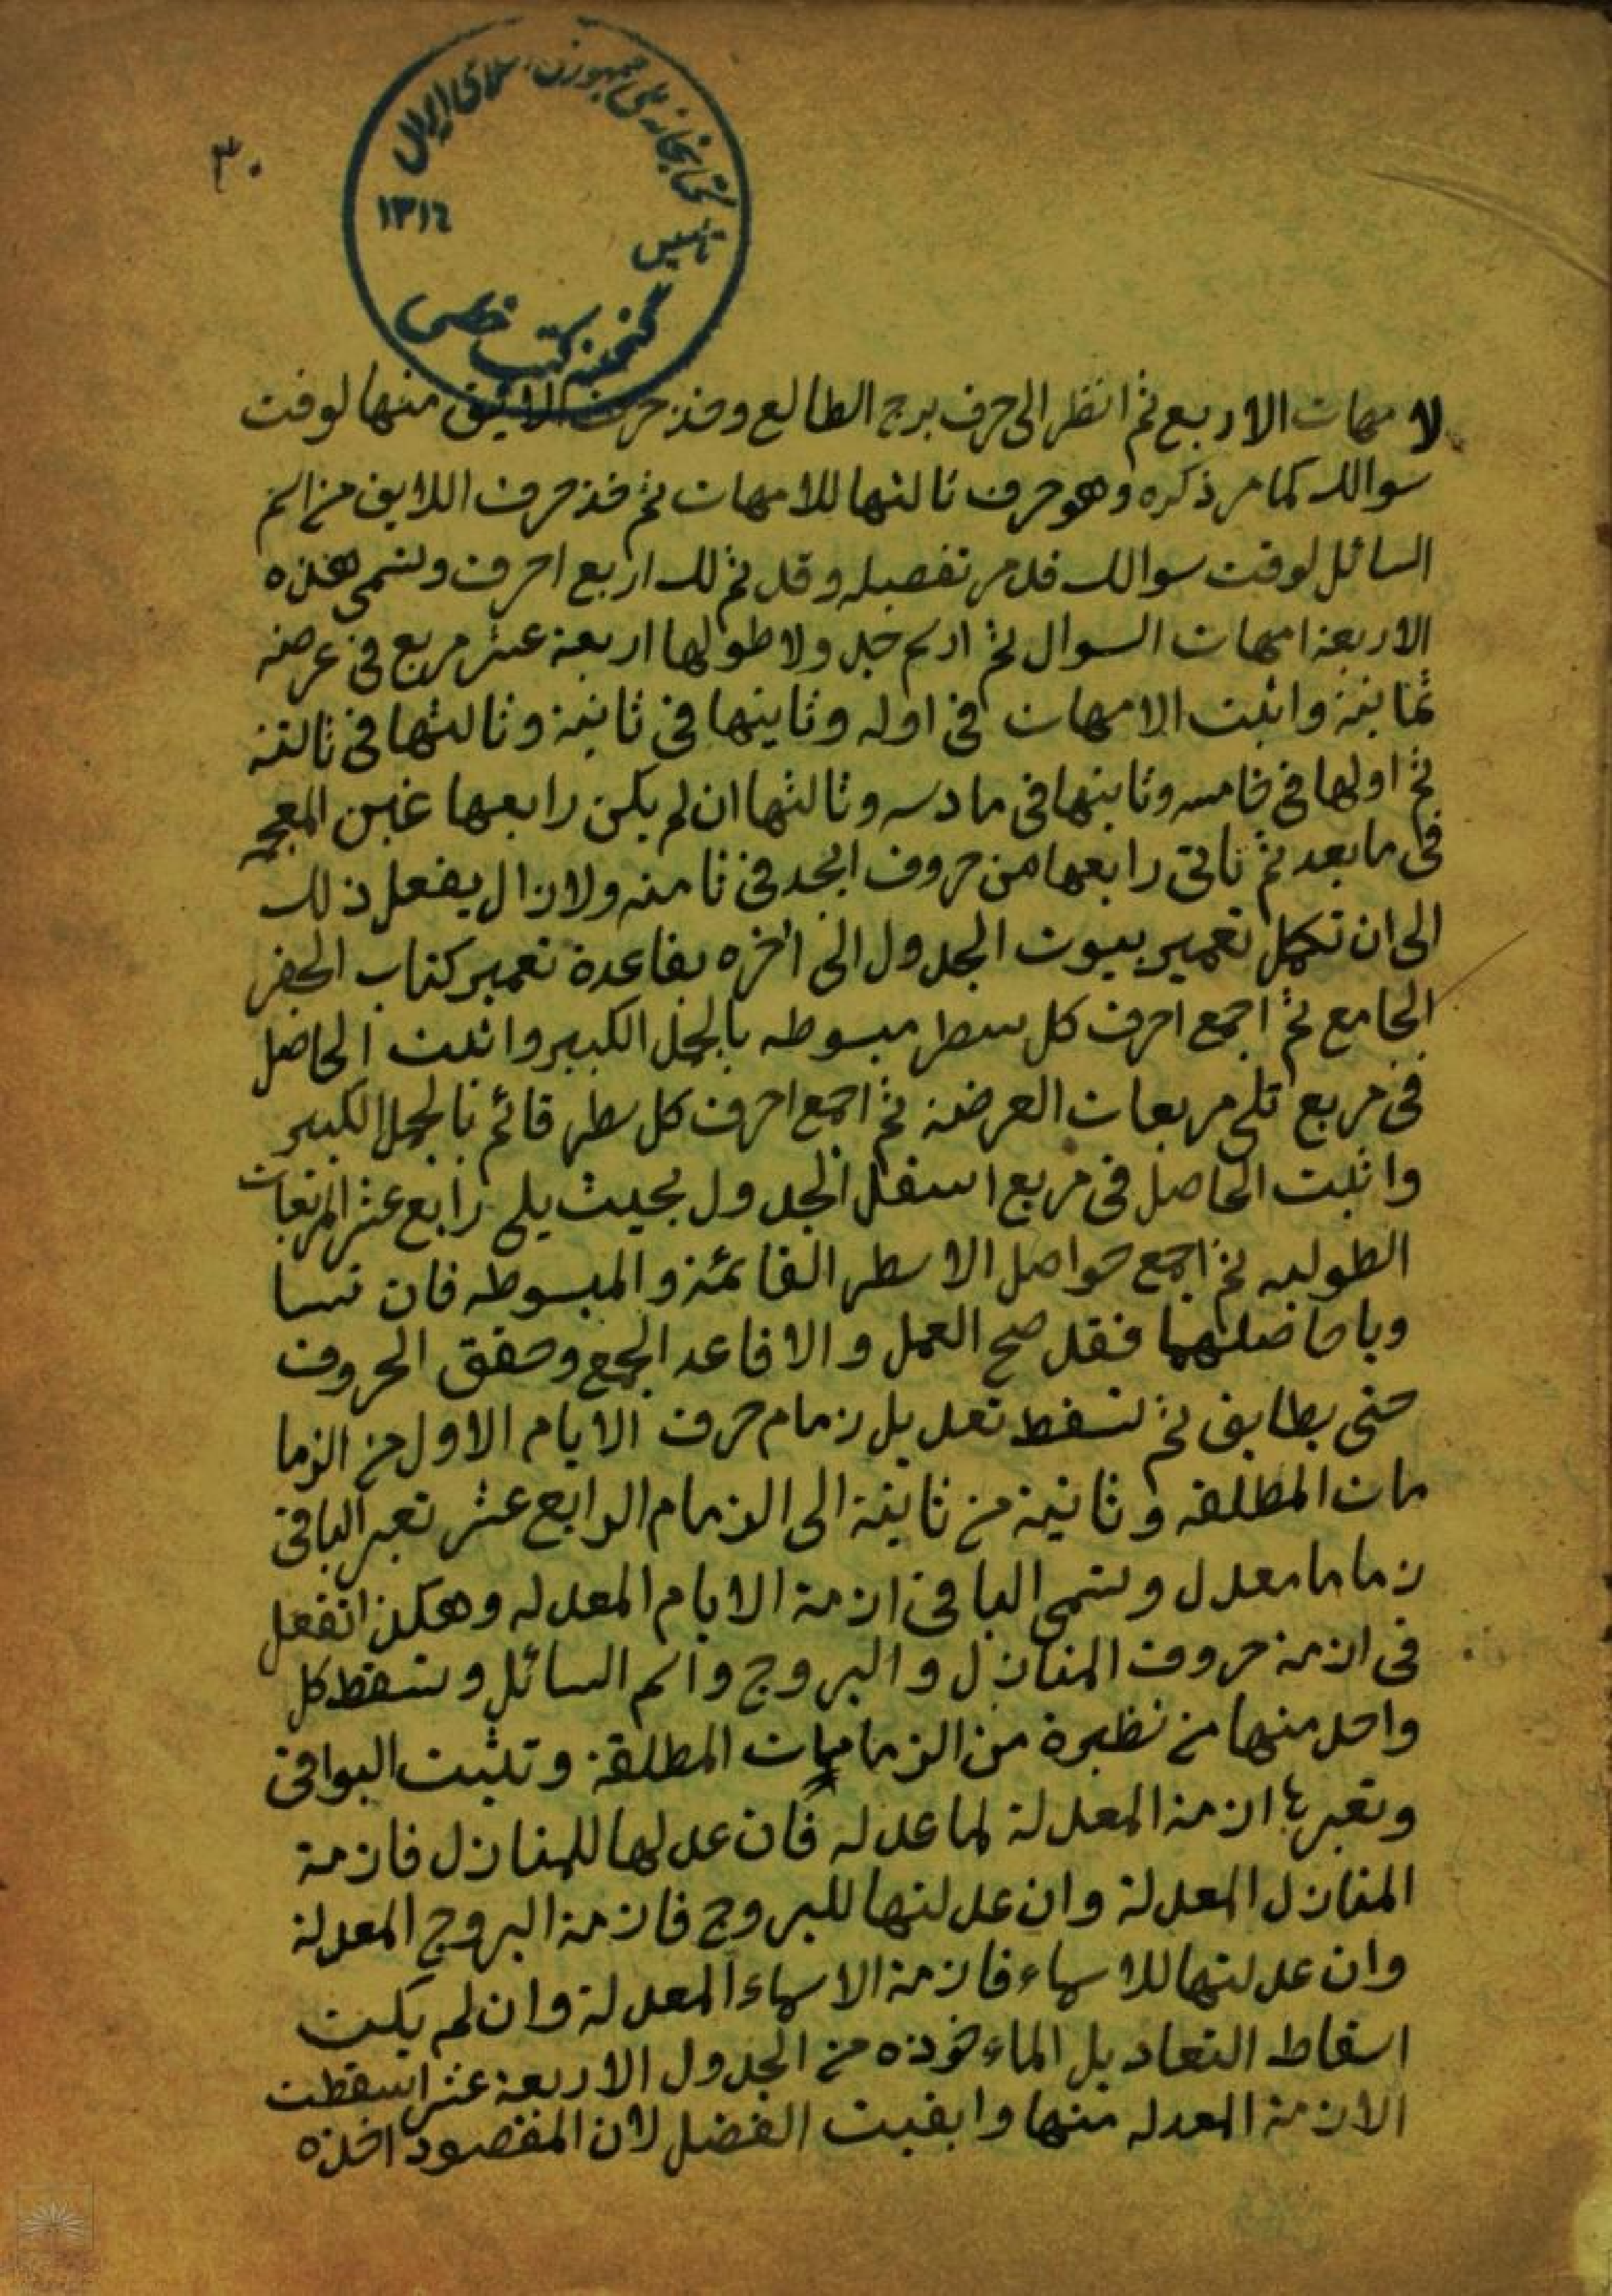 ٣٠
كتابخانه ملى جمهورى اسلامى ايران
تاسيس
١٣١٦
گنجينه كتب خطى
لامهات الاربع ثم انظر الى حرف برج الطالع وخذ حرف اللايق منها لوقت
سوالك كما مر ذكره وهو حرف ثالثها للامهات ثم خذ حرف اللايق من اسم
السائل لوقت سوالك قد مر تفصيله وقد تم لك اربع احرف وتسمى هذه
الاربعة امهات السوال ثم ارسم جدولا طولها اربعة عشر مربع فى عرضه
ثمانية واثبت الامهات فى اوله وثانيها فى ثانية وثالثها فى ثالثة
ثم اولها فى خامسه وثانيها فى سادسه وثالثها ان لم يكن رابعها غين المعجمه
فى ما بعد ثم تاتى رابعها من حروف ابجد فى ثامنه ولا زال يفعل ذلك
الى ان تكمل تعمير بيوت الجدول الى اخره بقاعدة تعمير كتاب الجفر
الجامع ثم اجمع احرف كل سطر مبسوطه بالجمل الكبير واثبت الحاصل
فى مربع تلى مربعات العرضة ثم اجمع احرف كل سطر قائم بالجمل الكبير
واثبت الحاصل فى مربع اسفل الجدول بحيث يلى رابع عشر المربعات
الطوليه ثم اجمع حواصل الاسطر القائمة والمبسوطه فان تسا
ويا حاصلهما فقد صح العمل والا فاعد الجمع وحقق الحروف
حتى يطابق ثم تسقط تعديل زمام حرف الايام الاول من الزما
مات المطلقه وثانية من ثانية الى الزمام الرابع عشر تعبر الباقى
زماما معدل وتسمى الباقى ازمة الايام المعدله وهكذا تفعل
فى ازمة حروف المنازل والبروج واسم السائل وتسقط كل
واحد منها من نظيرة من الزمامات المطلقة وتثبت البواقى
وتعبرها ازمة المعدلة لما عدله فان عدلها للمنازل فازمة
المنازل المعدلة وان عدلتها للبروج فازمة البروج المعدلة
وان عدلتها للاسماء فازمة الاسماء المعدلة وان لم يكن
اسقاط التعاديل الماءخوذه من الجدول الاربعة عشر اسقطت
الازمة المعدله منها وابقيت الفضل لان المقصود اخذه